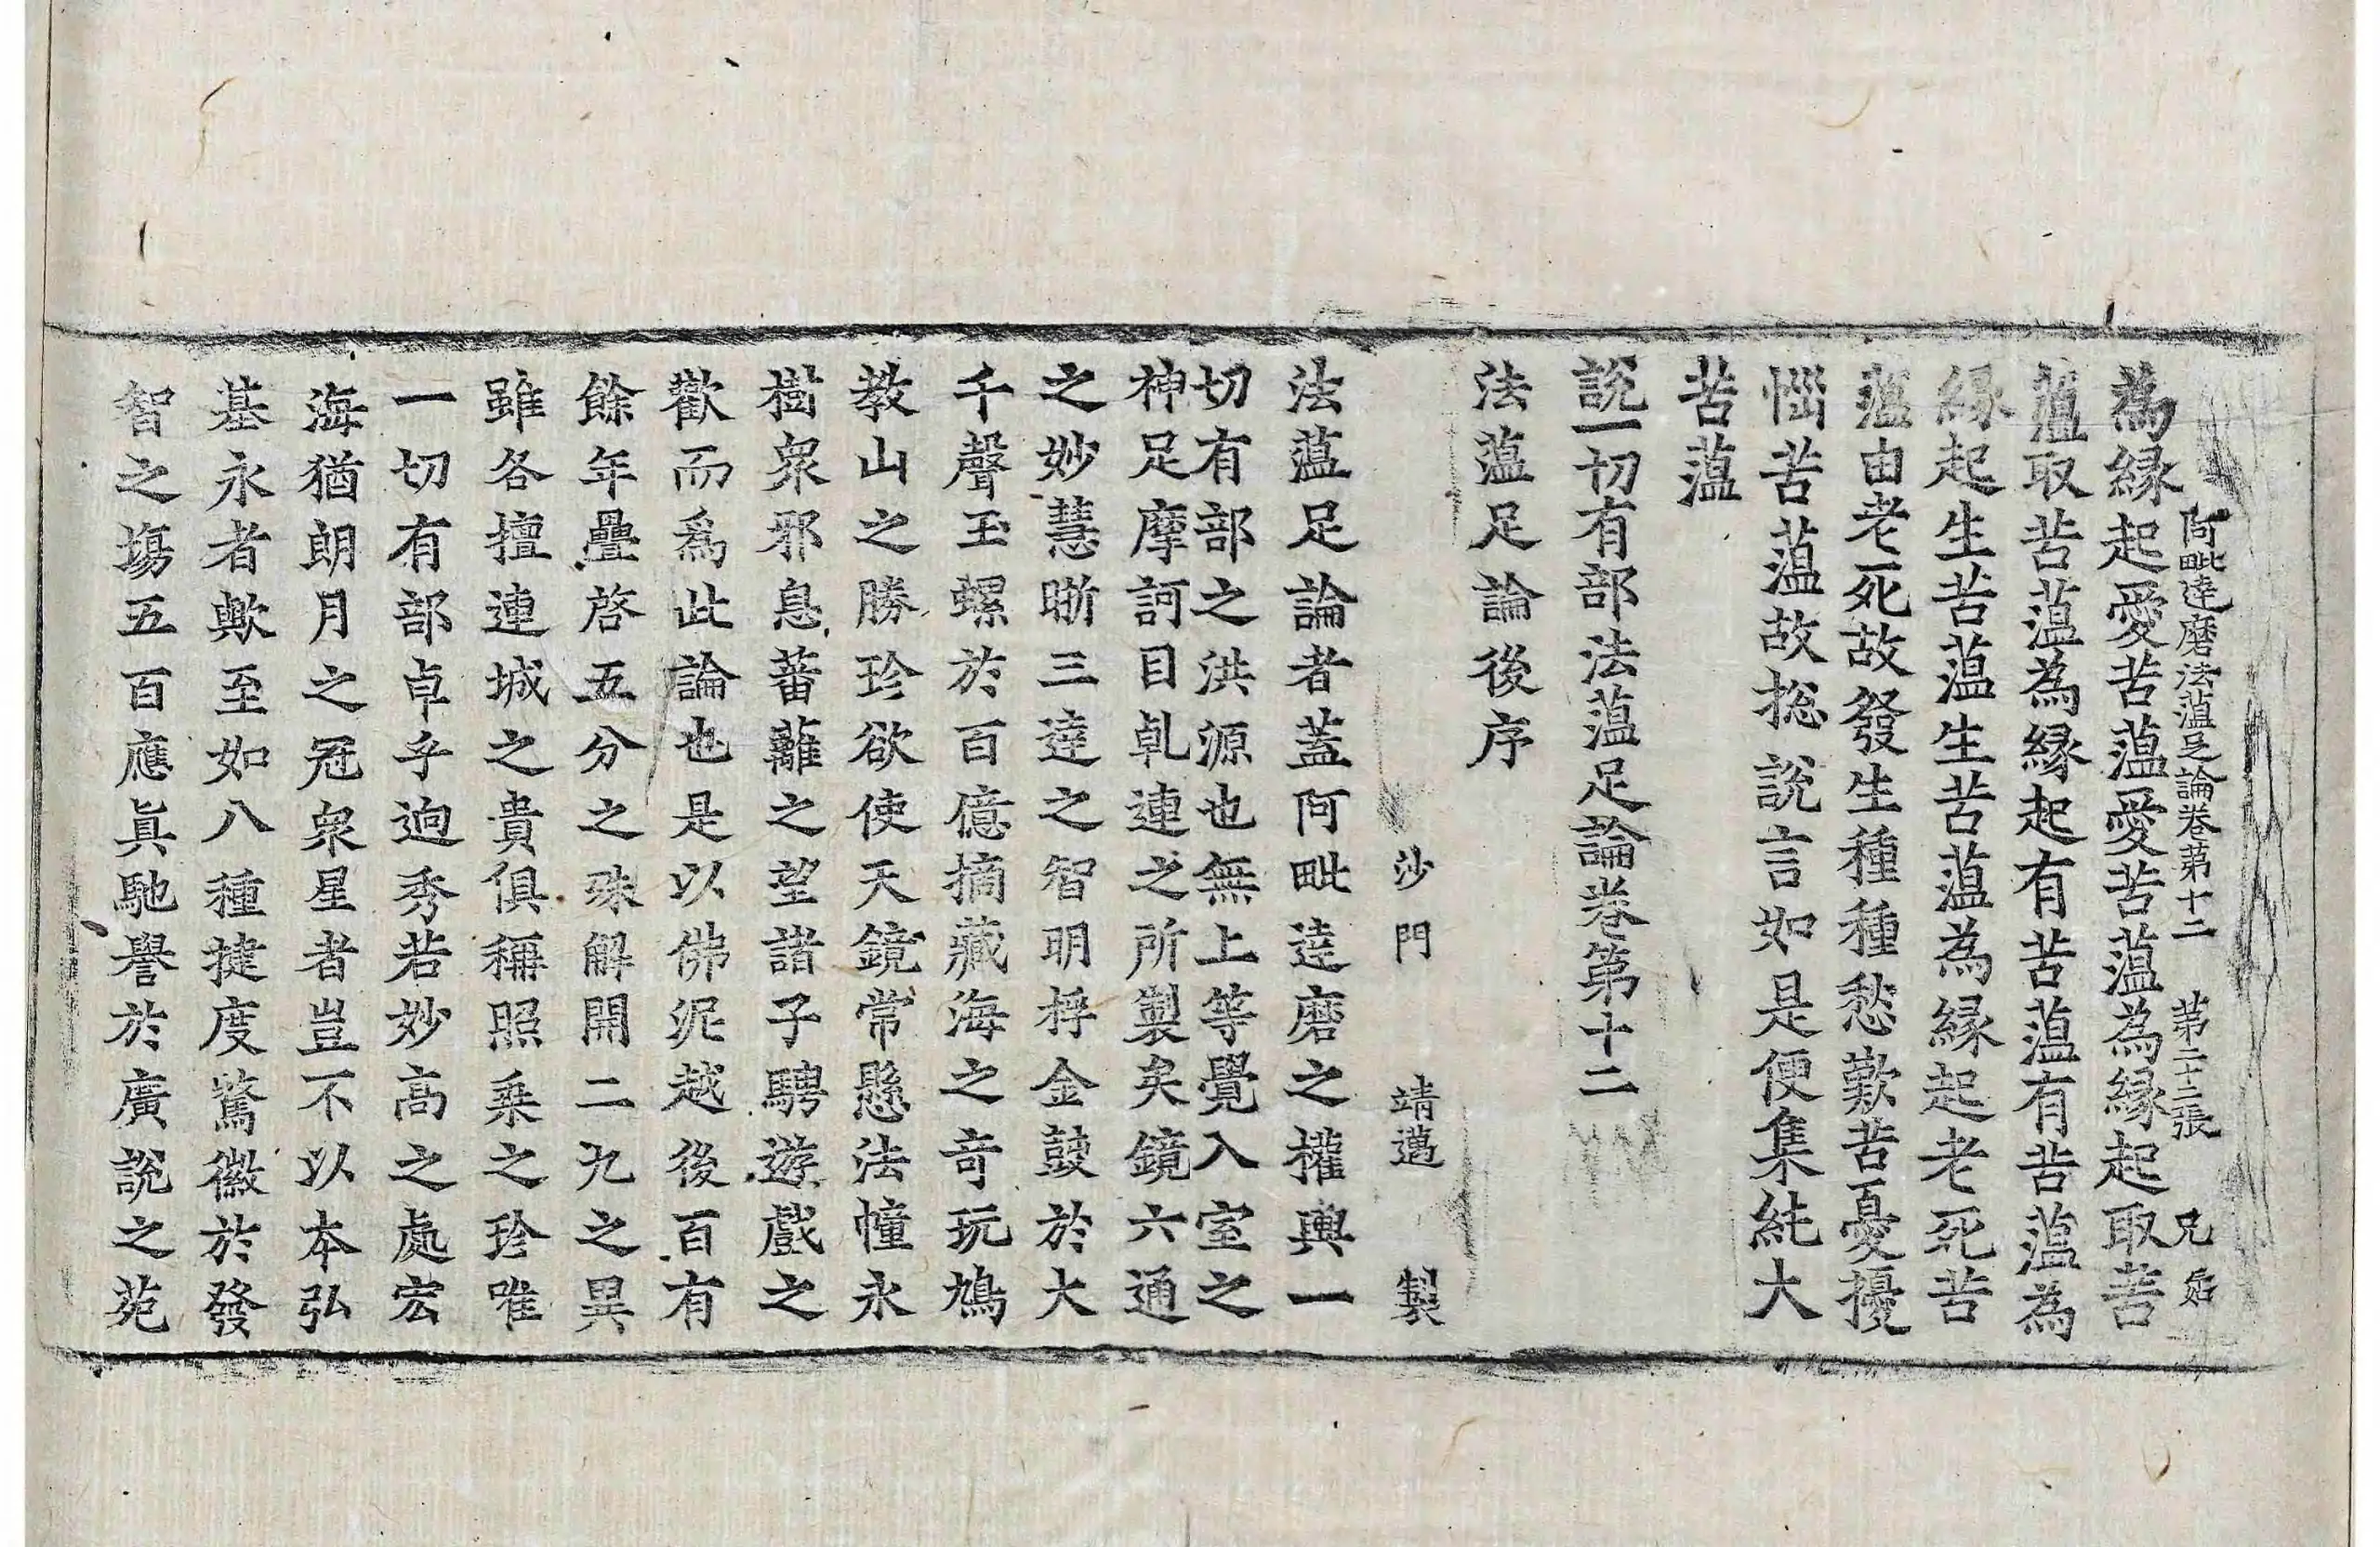 阿毗達磨法蘊足論卷第十二　第二十二張　兄
為緣起愛苦蘊愛苦蘊為緣起取苦
蘊取苦蘊為緣起有苦蘊有苦蘊為
緣起生苦蘊生苦蘊為緣起老死苦
蘊由老死故發生種種愁歎苦憂擾
惱苦蘊故揔說言如是便集純大
苦蘊
說一切有部法蘊足論卷第十二
法蘊足論後序
沙門　靖邁　製
法蘊足論者蓋阿毗達磨之權輿一
切有部之洪源也無上等覺入室之
神足摩訶目乹連之所製矣鏡六通
之妙慧晰三達之智明桴金鼓於大
千聲玉螺於百億摘藏海之竒玩鳩
教山之勝珍欲使天鏡常懸法幢永
樹衆邪息蕃蘺之望諸子騁遊戲之
歡而爲此論也是以佛泥越後百有
餘年疊啓五分之殊解開二九之異
雖各擅連城之貴俱稱照乘之珍唯
一切有部卓乎逈秀若妙高之處宏
海猶朗月之冠衆星者豈不以本弘
基永者歟至如八種揵度騖徽於發
智之塲五百應眞馳譽於廣說之苑